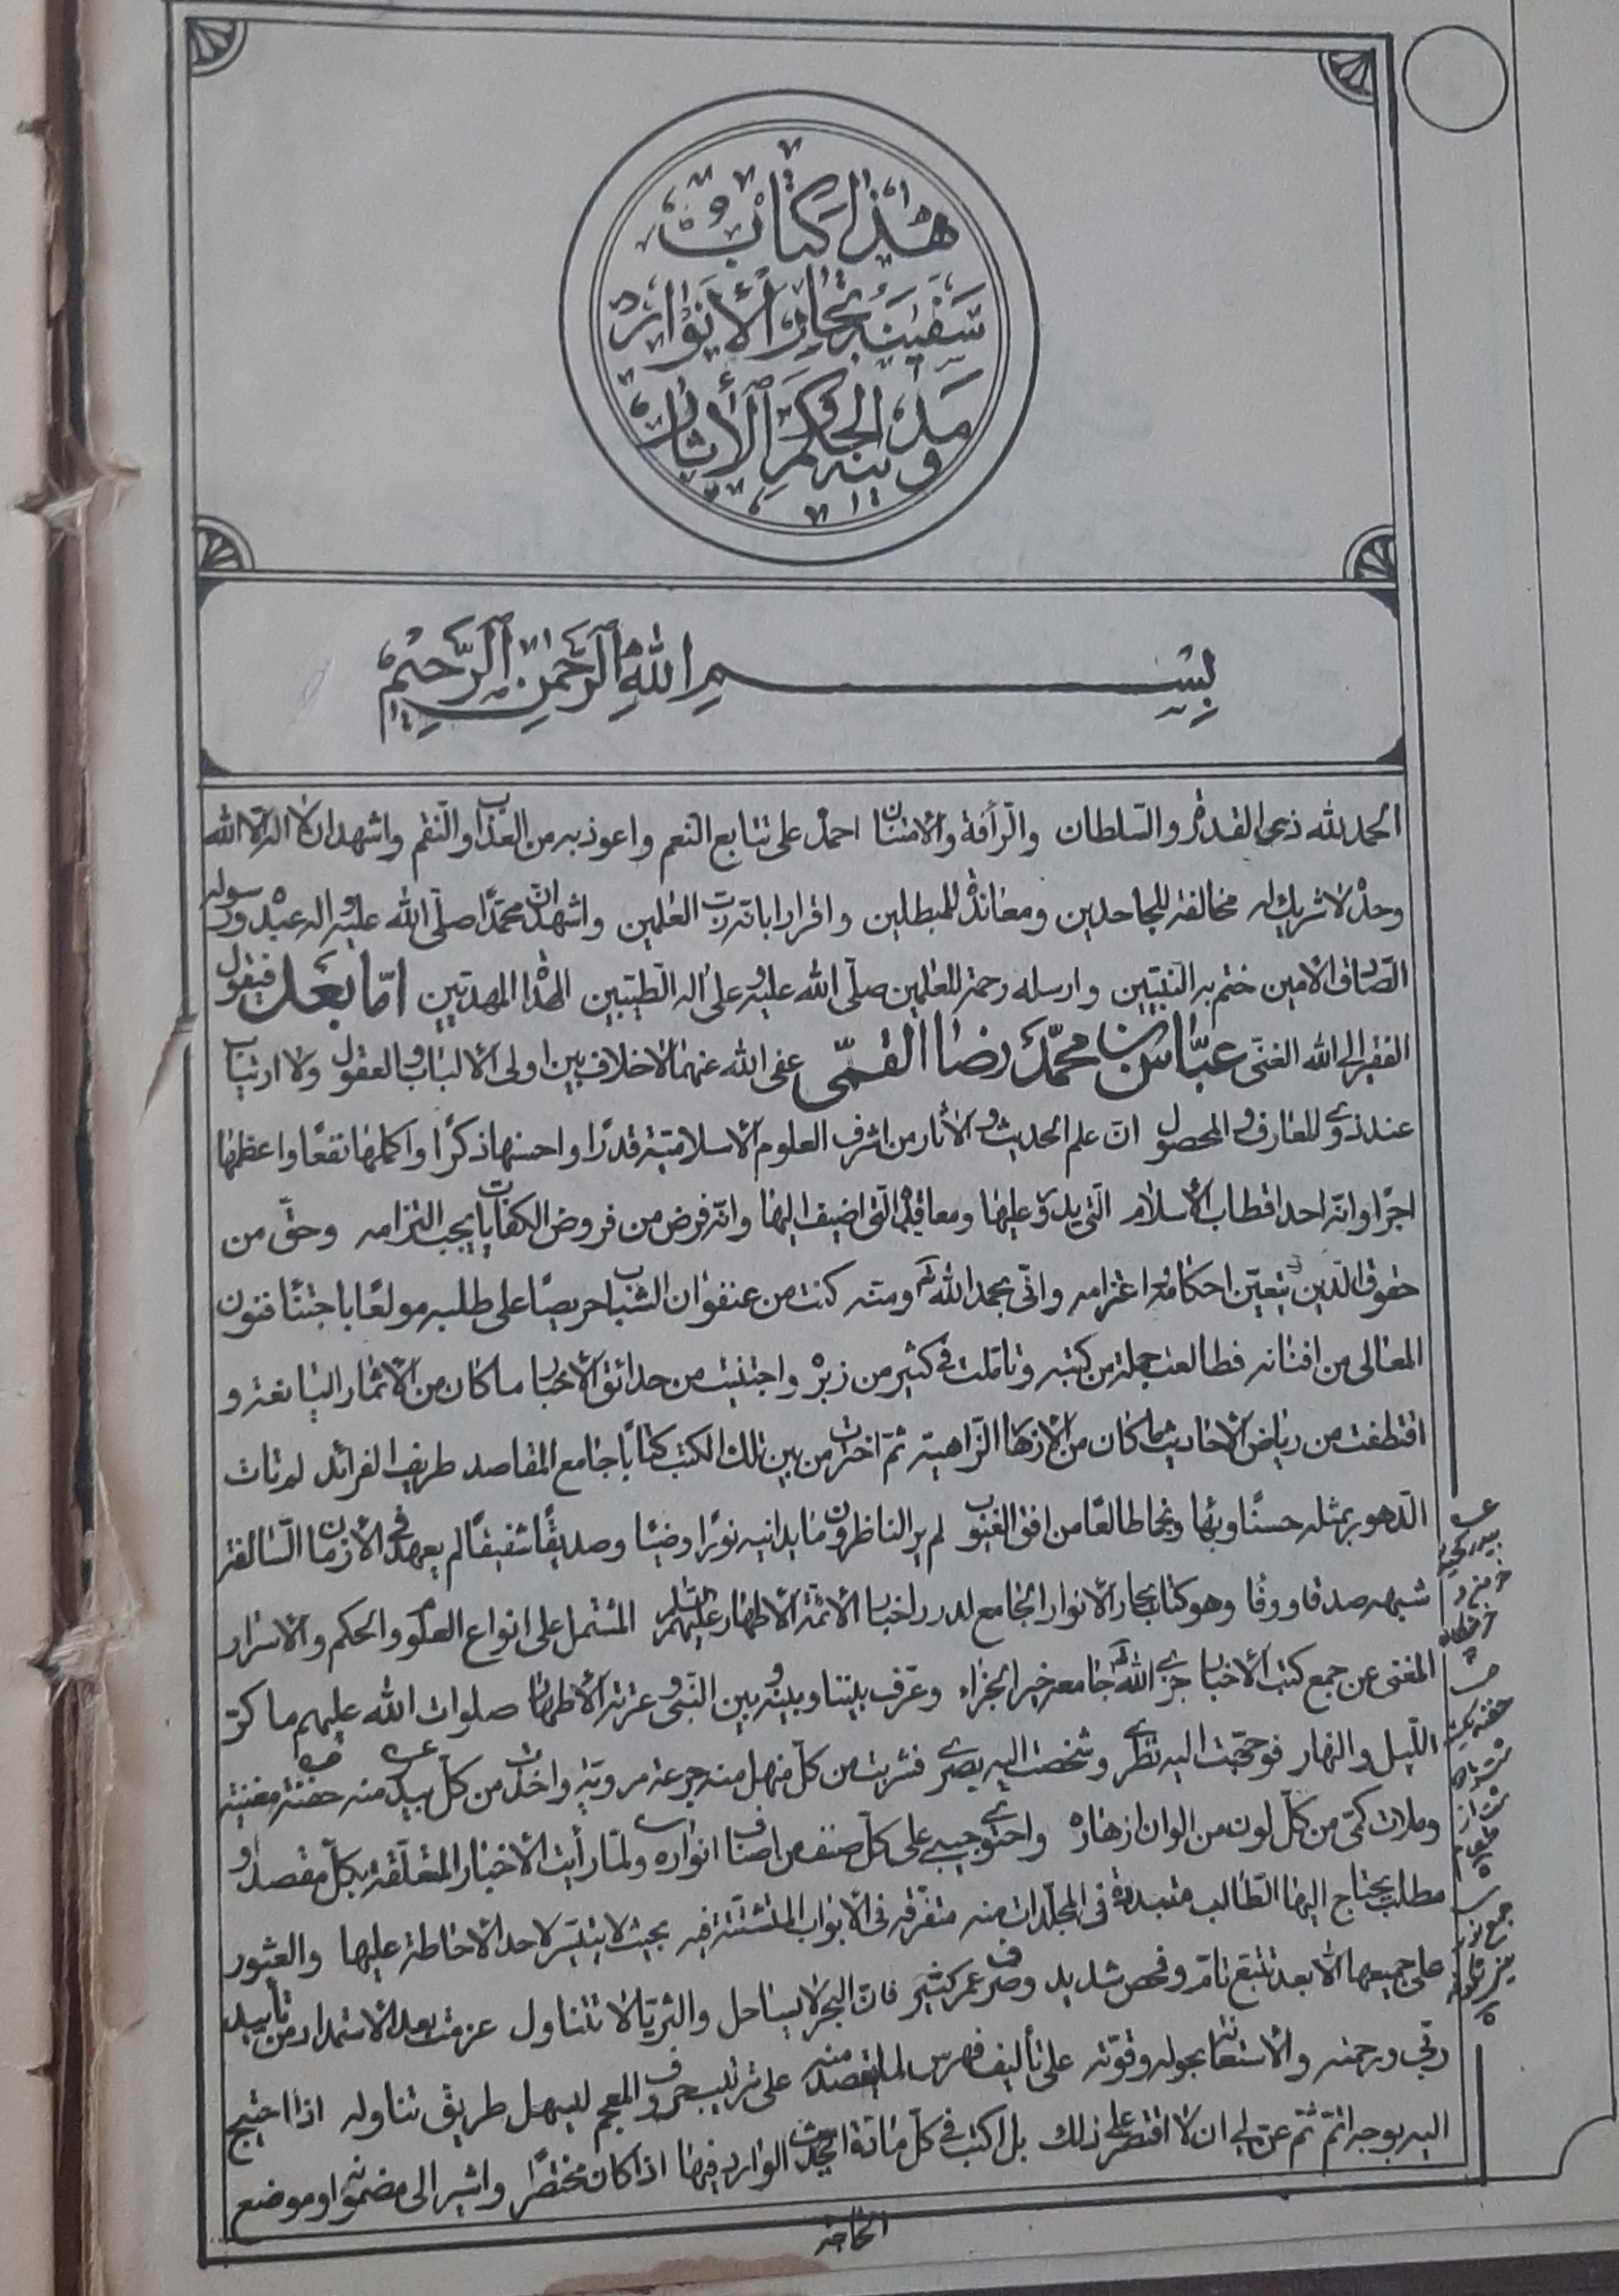 هذا كتاب
سفينة بحار الأنوار
ومدينة الحكم والآثار
بسم الله الرحمن الرحيم
الحمد لله ذى القدرة والسلطان والرأفة والامتنان احمده على تتابع النعم واعوذ به من العذاب والنقم واشهد ان لا اله الا الله
وحده لا شريك له مخالفة للجاحدين ومعاندة للمبطلين واقرارا بانه رب العلمين واشهد ان محمدا صلى الله عليه واله عبده ورسوله
الصادق الامين ختم به النبيين وارسله رحمة للعلمين صلى الله عليه وعلى اله الطيبين الهداة المهديين اما بعد فيقول
الفقير الى الله الغنى عباس بن محمد رضا القمى عفى الله عنهما لا خلاف بين اولى الالباب والعقول ولا ارتياب
عند ذوى المعارف والمحصول ان علم الحديث والآثار من اشرف العلوم الاسلامية قدرا واحسنها ذكرا واكملها نفعا واعظمها
اجرا وانه احد اقطاب الاسلام التى يدور عليها ومعاقله التى اضيف اليها وانه فرض من فروض الكفايات يجب التزامه وحق من
حقوق الدين يتعين احكامه واعتزامه وانى بحمد الله ومنه كنت من عنفوان الشباب حريصا على طلبه مولعا باجتناء فنون
المعالى من افنانه فطالعت جملة من كتبه وتاملت فى كثير من زبره واجتنيت من حدائق الاخبار ما كان من الاثمار اليانعة و
اقتطفت من رياض الاحاديث ما كان من الازهار الزاهية ثم اخترت من بين تلك الكتب كتابا جامع المقاصد طريف الفرائد لم تات
الدهور بمثله حسنا وبهاء ونجما طالعا من افق الغيوب لم ير الناظرون ما يدانيه نورا وضياء وصديقا شفيقا لم يعهد فى الازمان السالفة
شبهه صدقا ووفاء وهو كتاب بحار الانوار الجامع لدرر اخبار الائمة الاطهار عليهم السلام المشتمل على انواع العلوم والحكم والاسرار
المغنى عن جمع كتب الاخبار جزى الله جامعه خير الجزاء وعرف بيننا وبينه وبين النبى وعترته الاطهار صلوات الله عليهم ما كر
الليل والنهار فوجهت اليه نظرى وشخصت اليه بصرى فشربت من كل منهل منه جرعة مروية واخذت من كل بيدر منه حفنة مغنية
وملات كمى من كل لون من الوان ازهاره واحتوى جيبى على كل صنف من اصناف انواره ولما رأيت الاخبار المتعلقة بكل مقصد و
مطلب يحتاج اليها الطالب متبددة فى المجلدات منه متفرقة فى الابواب المتشتتة فيه بحيث لا يتيسر لاحد الاحاطة عليها والعثور
على جميعها الا بعد تتبع تام وفحص شديد وصرف عمر كثير فان البحر لا يساحل والثريا لا تتناول عزمت بعد الاستمداد من تأييد
ربى ورحمته والاستعانة بحوله وقوته على تأليف فهرس لما يقصد منه على ترتيب حروف المعجم ليسهل طريق تناوله اذا احتيج
اليه بوجه اتم ثم عن لى ان لا اقتصر على ذلك بل اكتب فى كل مادة الحديث الوارد فيها اذا كان مختصرا واشير الى مضمونه او موضع
الحاجة